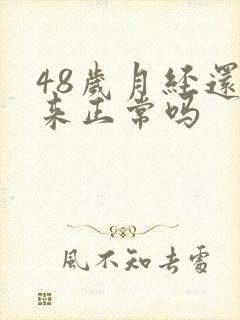 48歲月經還
來正常吗
風不知去處